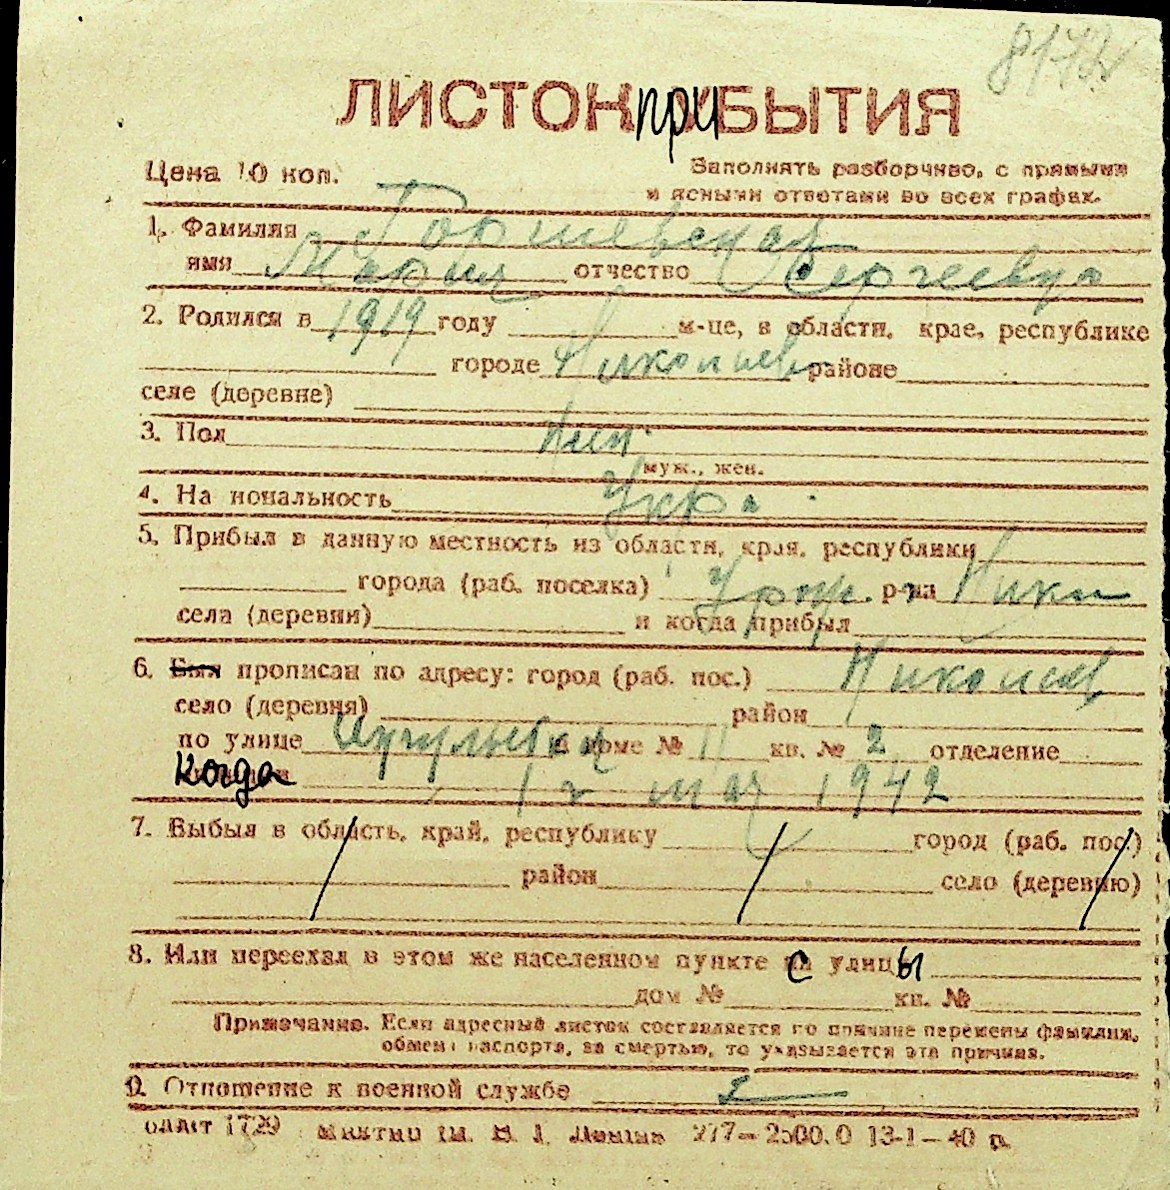 8172
ЛИСТОК ПРИБЫТИЯ
Цена 10 коп.
Заполнять разборчиво, с прямыми
и ясными ответами во всех графах.
1. Фамилия
имя Мария отчество Сергеевна
2. Родился в 1919 году м-це, в области, крае, республике
городе Николаев районе
селе (деревне)
3. Пол жен.
муж., жен.
4. Национальность Укр.
5. Прибыл в данную местность из области, края, республики
города (раб. поселка) р-на
села (деревни) и когда прибыл
6. Был прописан по адресу: город (раб. пос.) Николаев
село (деревня) район
по улице в доме № 11 кв. № 2 отделение
когда 12 мая 1942
7. Выбыл в область, край, республику город (раб. пос.)
район село (деревню)
8. Или переехал в этом же населенном пункте с улицы
дом № кв. №
Примечание. Если адресный листок составляется по причине перемены фамилии,
обмена паспорта, за смертью, то указывается эта причина.
9. Отношение к военной службе
1729 им. В. И. Ленина 277—2500.0 13-1—40 г.